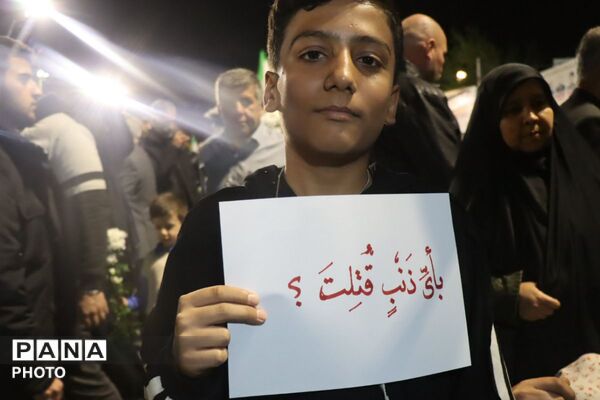 بأىِّ ذَنۢبٍ قُتِلَت ؟
PANA
PHOTO